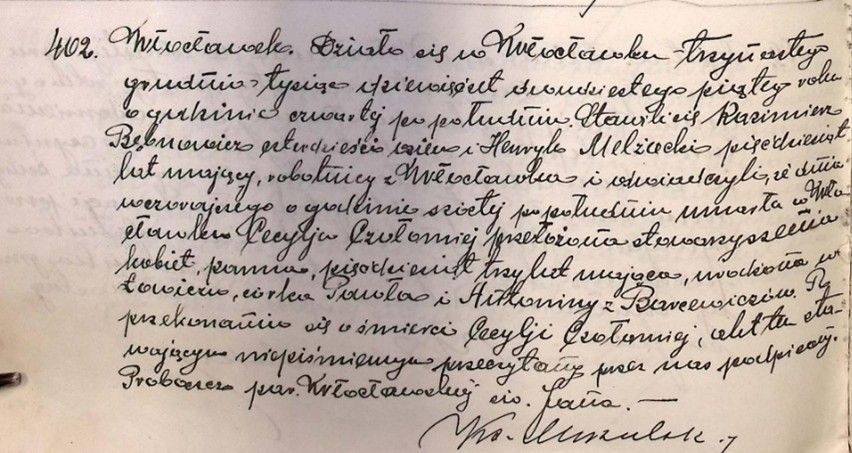 402. Włocławek. Działo się w Włocławku trzynastego
grudnia tysiąc dziewięćset dwudziestego piątego roku
o godzinie czwartej po południu. Stawili się Kazimierz
czterdzieści i Henryk Melzacki pięćdziesiąt
lat mający, robotnicy z Włocławka i oświadczyli, że dnia
wczorajszego o godzinie szóstej po południu umarła w Wło
cławku Cecylja Czołomiej przełożona stowarzyszenia
kobiet, panna, pięćdziesiąt trzy lat mająca, urodzona w
Łowiczu, córka Pawła i Antoniny z Barcewiczów. Po
przekonaniu się o śmierci Cecylji Czołomiej, akt ten sta
wającym niepiśmiennym przeczytany przez nas podpisany.
Proboszcz par. Włocławskiej św. Jana. —
Ks.